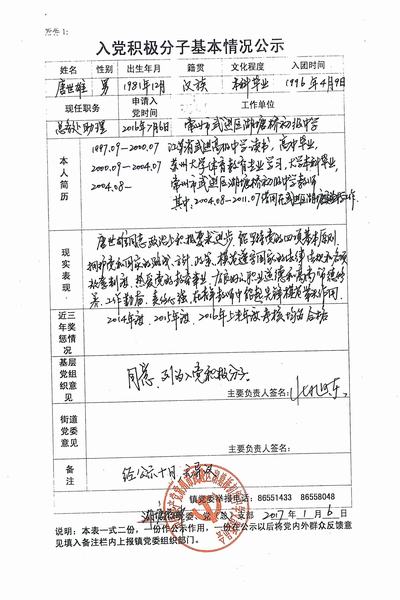 附件1:
入党积极分子基本情况公示
姓名 性别 出生年月 籍贯 文化程度 入团时间
唐世雄 男 1981年12月 汉族 本科毕业 1996年4月9日
现任职务 申请入党时间 工作单位
总务处助理 2016年7月6日 常州市武进区湖塘桥初级中学
本人简历
1997.09—2000.07 江苏省武进高级中学读书,高中毕业,
2000.09—2004.07 苏州大学体育教育专业学习,大学本科毕业,
2004.08— 常州市武进区湖塘桥初级中学教师
其中:2004.08—2011.07 借用在武进区 工作
现实表现
唐世雄同志政治上积极要求进步,能坚持党的四项基本原则,
拥护党和国家的路线、方针、政策、模范遵守国家的法律法规和各项
规章制度,热爱党的教育事业,有良好的职业道德和高尚师德修
养,工作勤奋、责任心强,在青年教师中能起先锋模范带头作用。
近三年奖惩情况
2014年度、2015年度、2016年上半年度考核均为合格
基层党组织意见
同意列为入党积极分子。
主要负责人签名:
街道党委意见
主要负责人签名:
备注
经公示十日,无异议
镇党委举报电话:86551433 86558048
党委、党(总)支部 2017年1月6日
说明:本表一式二份,一份作公示用,一份在公示以后将党内外群众反馈意
见填入备注栏内上报镇党委组织部门。